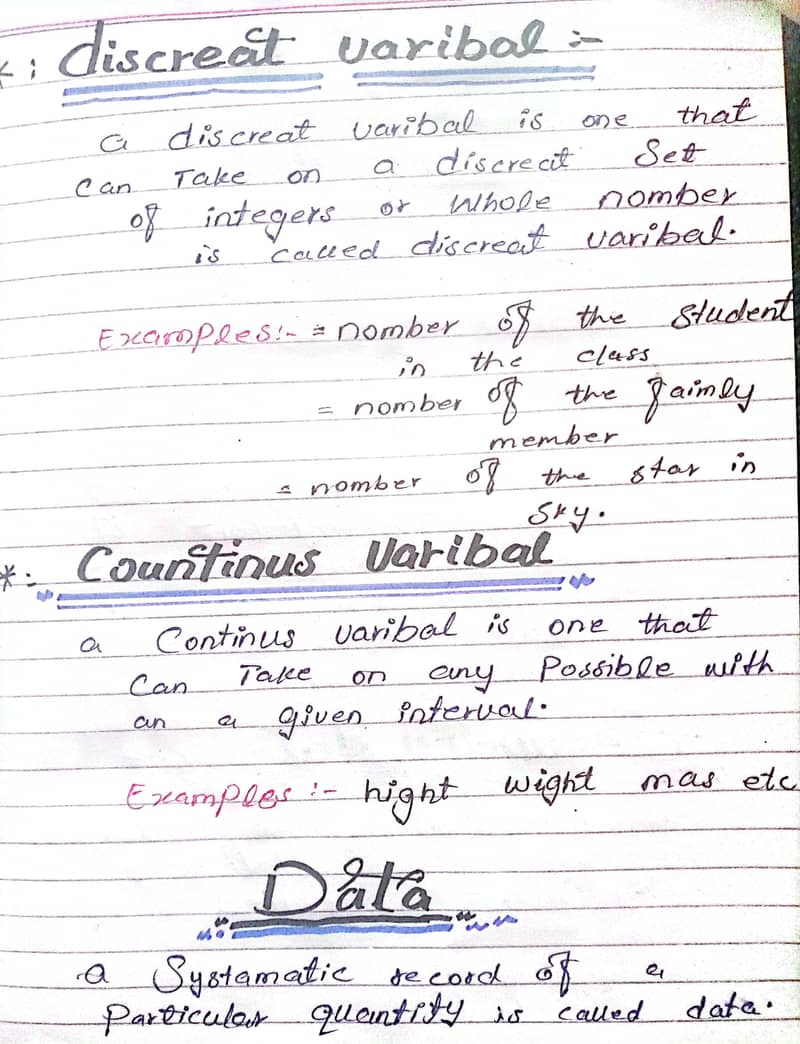 *: discreat varibal :-
a discreat varibal is one that
can Take on a discreat Set
of integers or whole nomber
is called discreat varibal.
Examples:- = nomber of the student
in the class
= nomber of the faimly
member
= nomber of the star in
sky.
*:- Countinus varibal
a Continus varibal is one that
can Take on any Possible with
an a given interval.
Examples :- hight wight mas etc
Data
a Systamatic record of a
Particular quantity is called data.